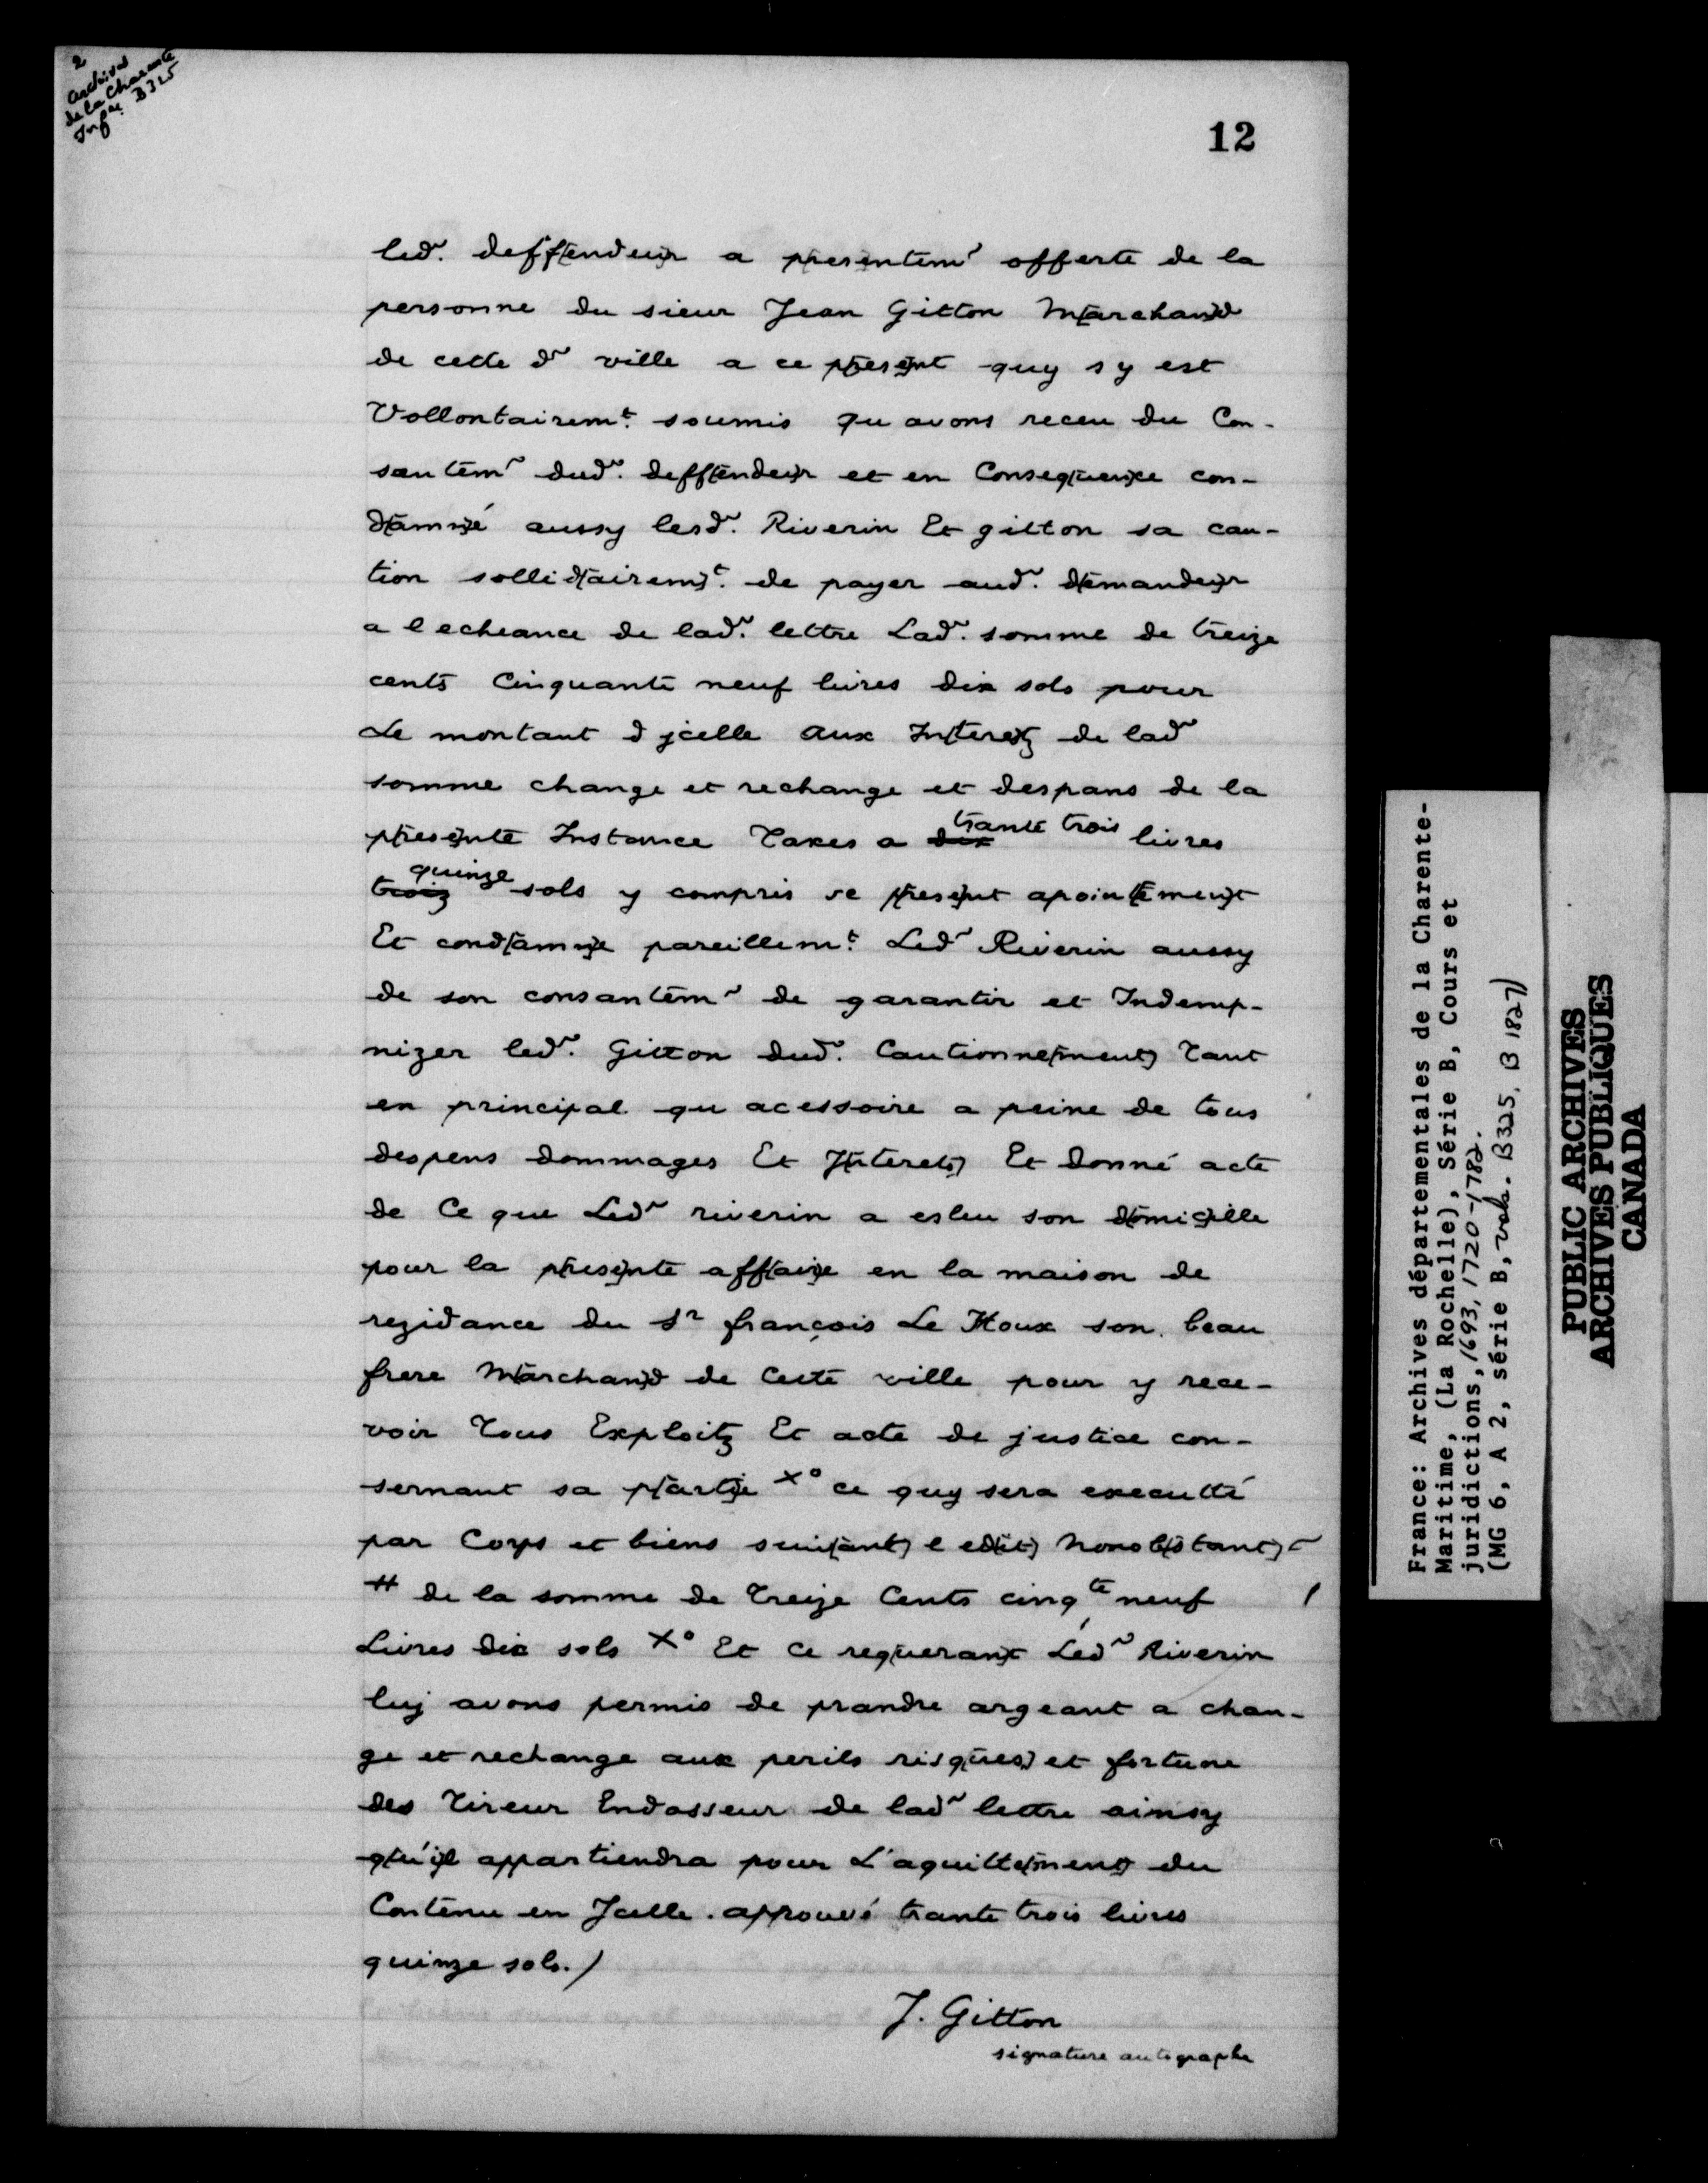 2
archives
de la Charente
Infre B325
12
led. deff(endeu)r a p(res)entem offerte de la
personne du sieur Jean Gitton M(archan)d
de cette d ville a ce p(res)ent quy s y est
Vollontairemt. soumis qu avons receu du Con-
santem dud. deff(ende)ur et en Conseq(uen)ce con-
d(amn)é aussy lesd. Riverin Et gitton sa cau-
tion sollid(airem)t. de payer aud. d(emande)ur
a l echeance de lad. lettre Lad. somme de treize
cents Cinquante neuf livres dix sols pour
Le montant d jcelle aux In(teres)tz de lad
somme change et rechange et despans de la
p(rese)nte Instance Taxes a dix trante trois livres
troiz quinze sols y compris se p(rese)nt apoin(temen)t
Et cond(amn)e pareillemt. Led Riverin aussy
de son consantem de garantir et Indemp-
nizer led. Gitton dud. Cautionne(ment) Tant
en principal qu acessoire a peine de tous
despens dommages Et J(nterets) Et donné acte
de Ce que Led riverin a esleu son d(omic)ille
pour la p(rese)nte aff(air)e en la maison de
rezidance du Sr françois Le Houx son beau
frere M(archan)d de Cette ville pour y rece-
voir Tous Exploitz Et acte de justice con-
sernant sa p(arti)e X° ce quy sera executté
par Corps et biens suiv(ant) l ed(it) Nonob(stant)
# de la somme de Treize Cents cinqte neuf
Livres dix sols X° Et Ce req(ueran)t Led Riverin
luj avons permis de prandre argeant a chan-
ge et rechange aux perils risq(ues) et fortune
des Tireur Endosseur de lad lettre ainsy
q(u'i)l appartiendra pour L'aquitte(ment) du
Contenu en Jcelle. approuvé trante trois livres
quinze sols./
J. Gitton
signature autographe
France: Archives départementales de la Charente-
Maritime, (La Rochelle), Série B, Cours et
juridictions, 1693, 1720-1782.
(MG 6, A 2, série B, vols. B325, B 1827)
PUBLIC ARCHIVES
ARCHIVES PUBLIQUES
CANADA